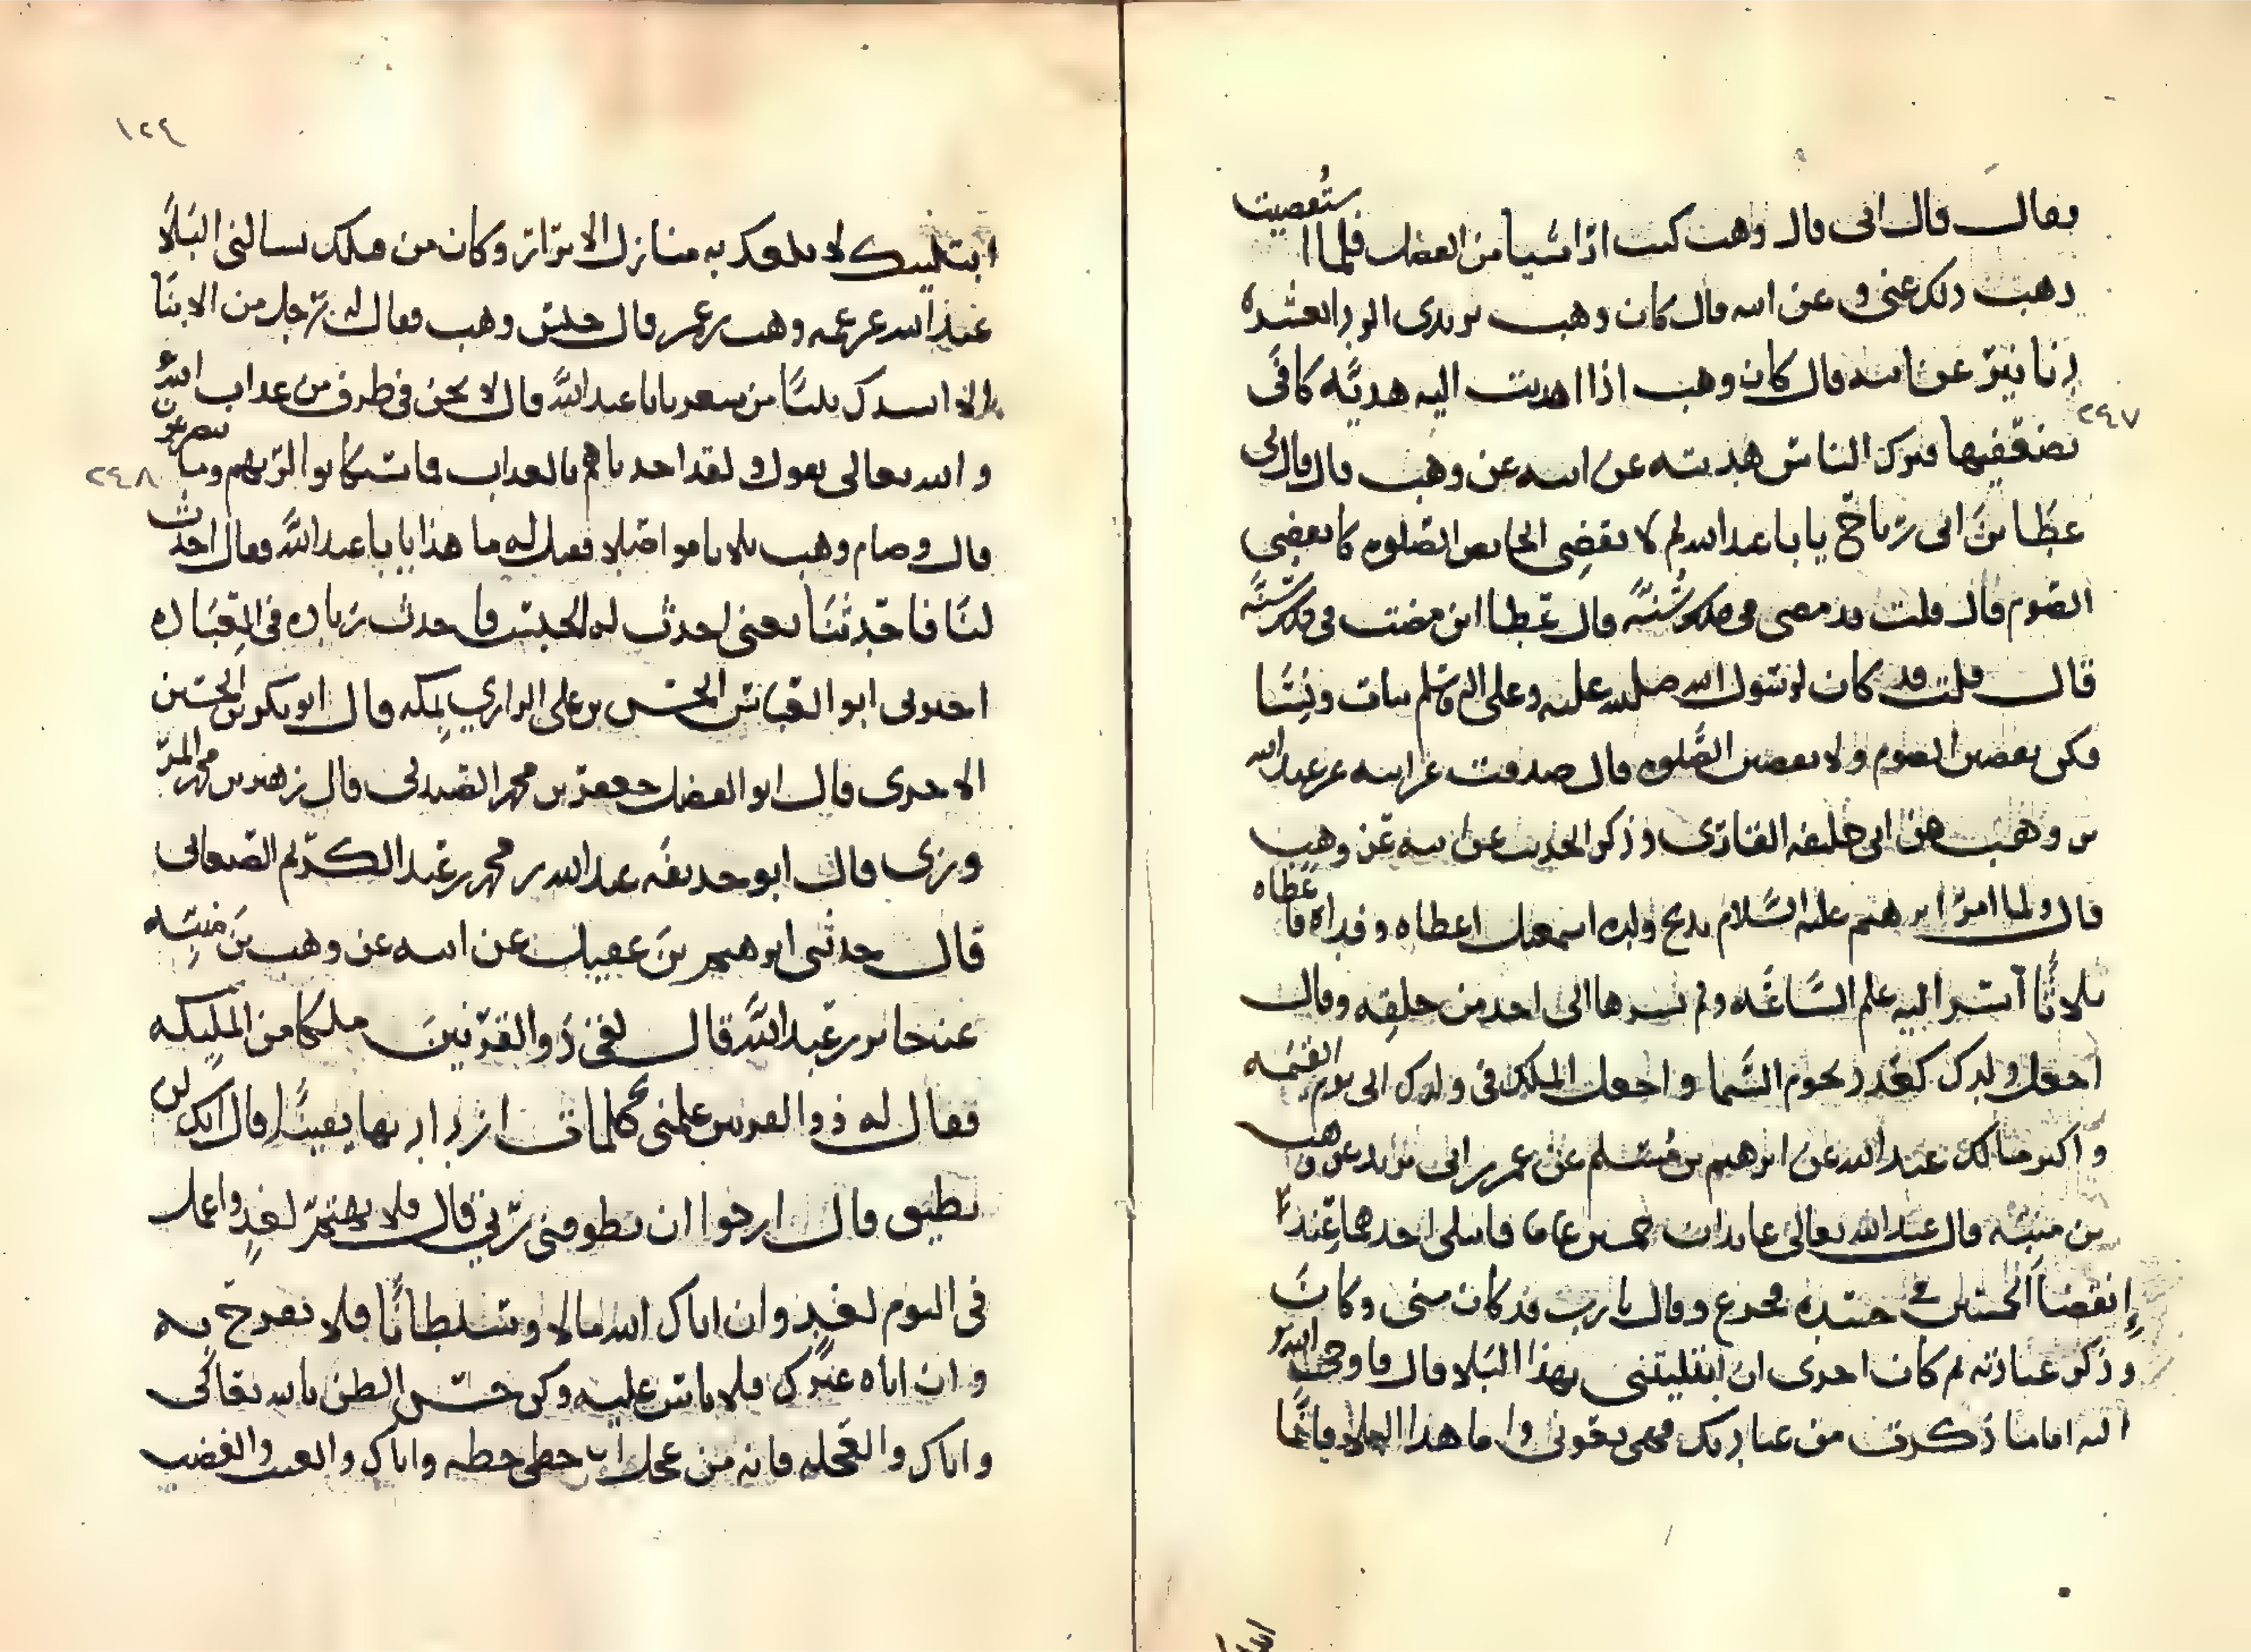 فقال قال ابى قال وهب كنت اذا اشيا من الفضل فلما استعصيت
ذهب ذلك عنى وعن ابيه قال كان وهب يريدى الورد العشره
دنانير عن ابيه قال كان وهب اذا اهديت اليه هديّه كافى
بضعفيها فترك الناس هديته عن ابيه عن وهب قال قال لى
عطا بن ابى رباح يا با عبد الله لم لا تقضى الحايض الصلوه كما تقضى
الصوم قال قلت قد مضى فى ذلك سُنّه قال عطا اين مضت فى ذلك سُنّه
قال قلت قد كان لرسول الله صلى الله عليه وعلى اله وسلم بنات ونسا
فكن يقضين الصوم ولا يقضين الصلوه قال صدقت عن ابيه عن عبد الله
بن وهب عن ابى خليفه القارى وذكر الحديث عن ابيه عن وهب
قال ولما امر ابرهيم عليه السلام بذبح ولده اسمعيل اعطاه وفداه فاعطاه
ثلاثا اسر اليه علم السّاعه ولم يسرها الى احد من خلقه وقال
اجعل ولدك كعدد نجوم السّما واجعل الملك فى ولدك الى يوم القيمه
عبد الله عن ابرهيم بن مسلم عن عمر بن ابى يزيد عن وهب
بن منبّه قال عبد الله تعالى عابدان خمسين عاما فابتلى احدهما عند
انقضا الخمسين فى جسده فجزع وقال يا رب قد كان منى وكان
وذكر عبادته ثم كان اخرى ان ابتليتنى بهذا البلا قال فاوحى الله تع
اليه اما ما ذكرت من عبادتك فهى بعونى واما هذا البلا فانما
١٢٤
ابتليتك لابلغك به منازل الابرار وكان من قبلك يسالنى البلا
عبد الله عن عمه وهب بن عمر قال حبس وهب فقال له رجل من الابنا
الا انشدك بيتًا من شعر يا با عبد الله قال لا نحن فى طرف من عذاب الله
والله تعالى يقول ولقد اخذناهم بالعذاب فما استكانوا لربهم وما يتضرعون
قال وصام وهب ثلاثا مواصلا فقيل له ما هذا يا با عبد الله فقال احدث
لنا فاحدثنا يعنى احدث له الحبس فاحدث زياده فى العباده
اخبرنى ابو العباس الحسن بن على الرازي بمكه قال ابو بكر بن الحسين
الاجرى قال ابو الفضل جعفر بن محمد الصندلى قال زهير بن محمد المر
ورزى قال ابو حذيفه عبد الله بن محمد بن عبد الكريم الصنعانى
قال حدثنى ابرهيم بن عقيل عن ابيه عن وهب بن منبّه
عن جابر بن عبد الله قال لقى ذو القرنين ملكا من المليكه
فقال له ذو القرنين علمنى كلمات ازداد بها يقينًا قال انك لن
تطيق قال ارجوا ان يطوقنى ربى قال فلا تهتمّ لغدٍ واعمل
فى اليوم لغدٍ وان اتاك الله مالا وسلطانًا فلا تفرح به
وان اتاه غيرك فلا باس عليه وكن حسن الظن بالله تعالى
واياك والعجله فانه من عجل حظى حظه واياك والعنت والغضب
٢٤٧
٢٤٨